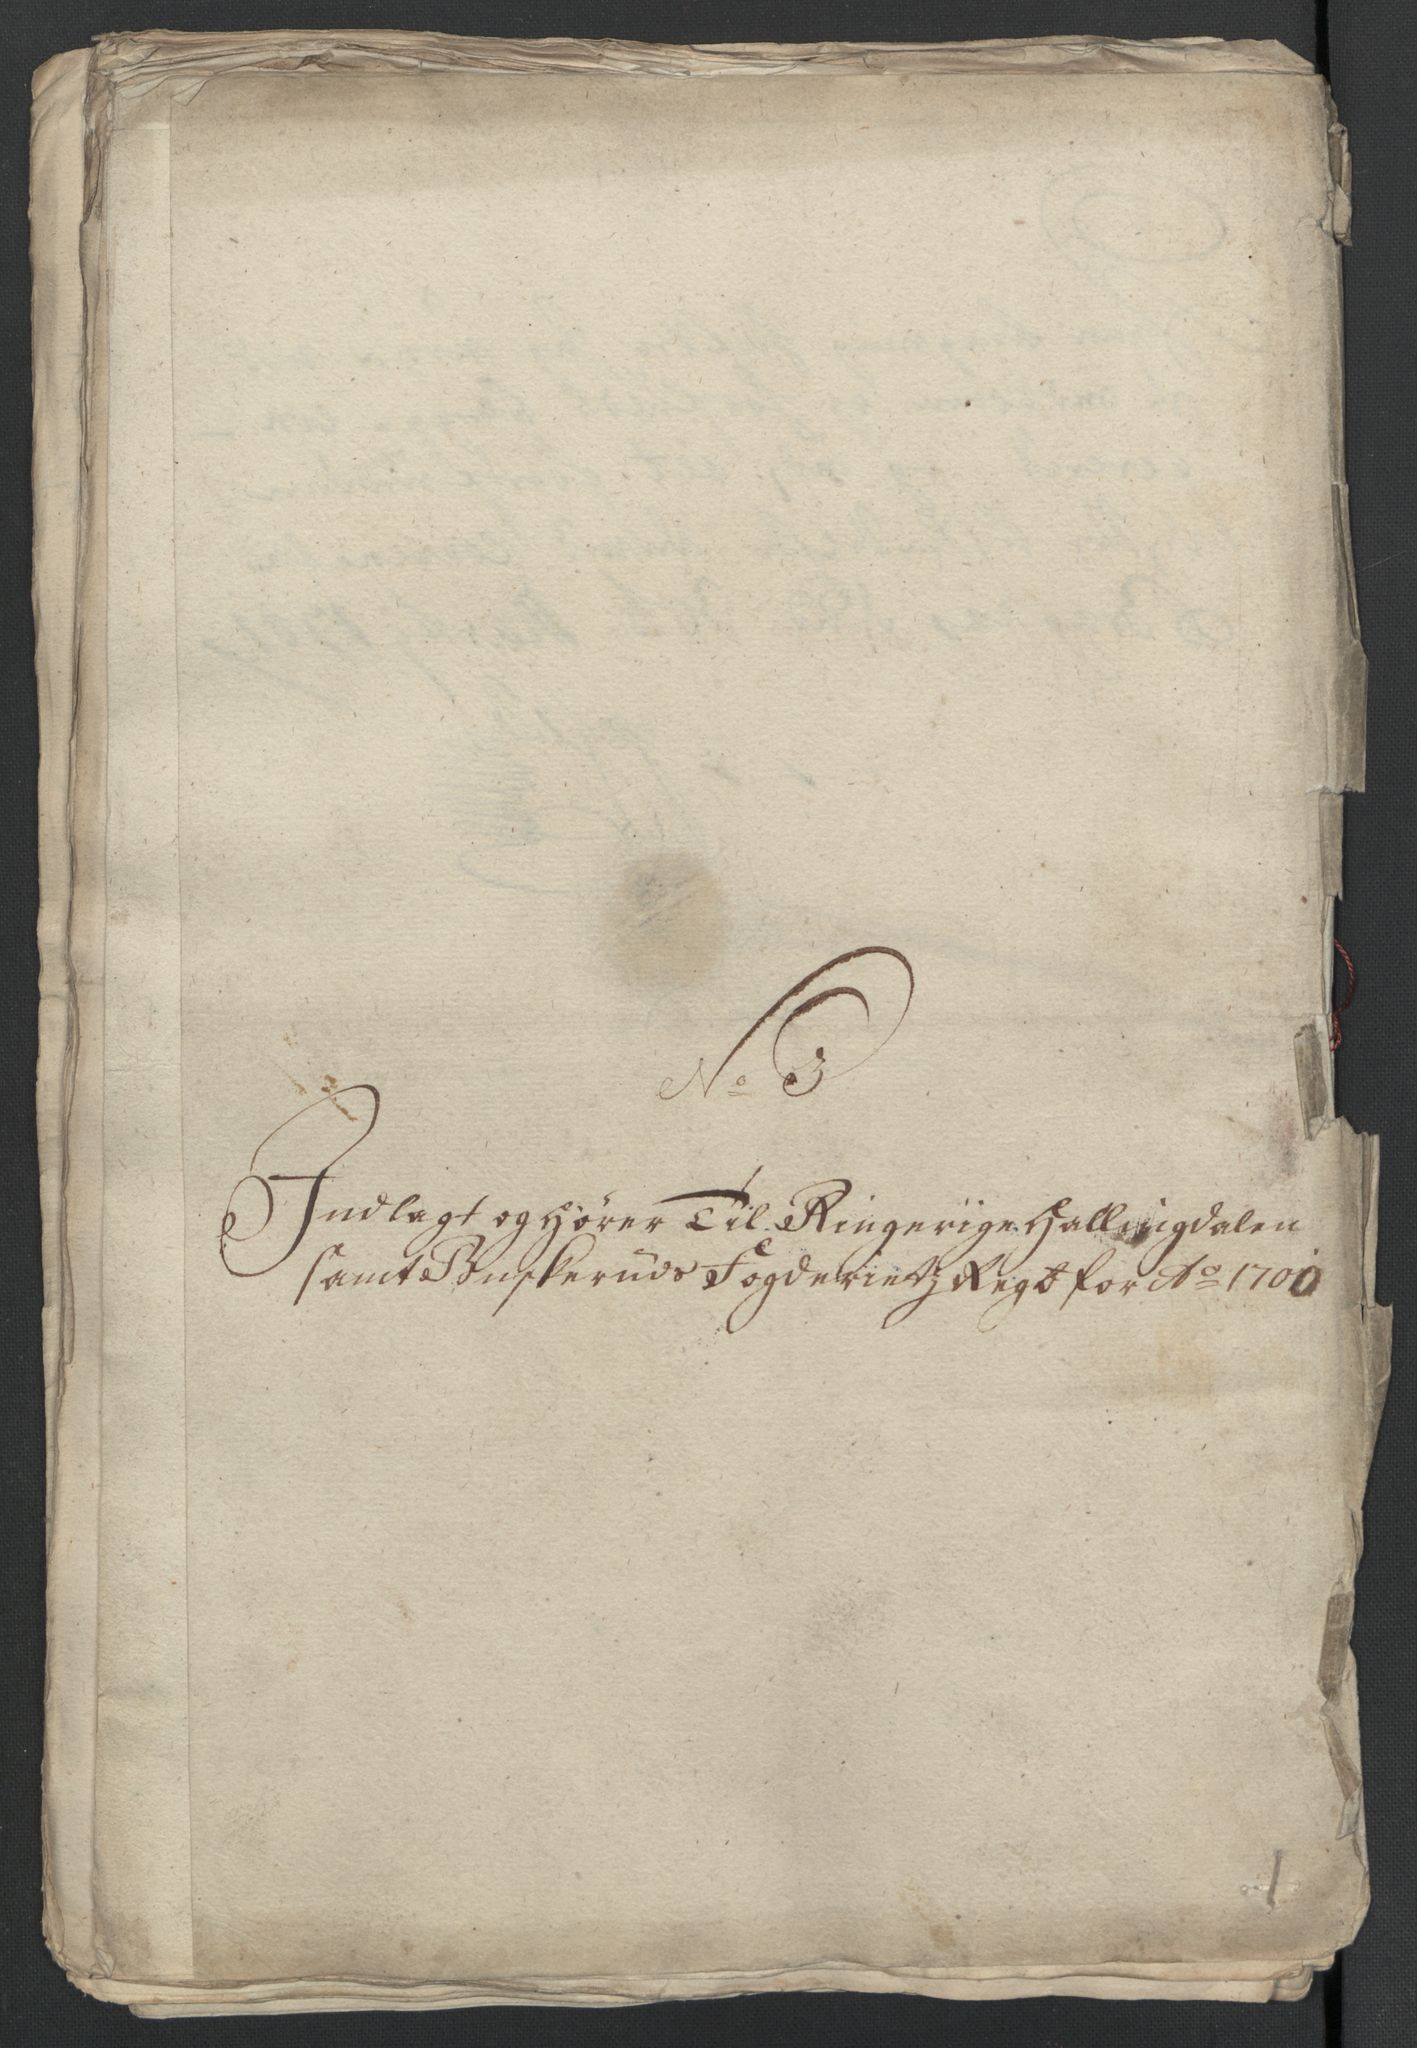 No 3
Indlagt og hører Til Ringerige Hallingdalen
samt Buskeruds Fogderietz Regb for Ao 1701